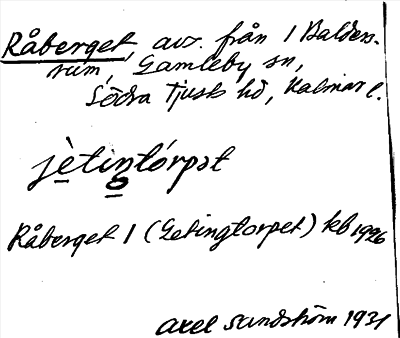 Råberget, avs. från 1 Balders-
rum, Gamleby sn,
Södra Tjusts hd, Kalmar l.
jètintórpət
Råberget 1 (Getingtorpet) kb 1926
Axel Sandström 1931